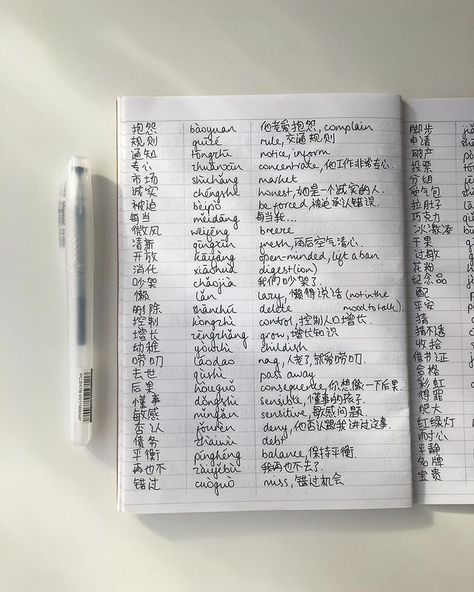 抱怨 bàoyuàn 他老爱抱怨, complain
规则 guīzé rule, 交通规则
通知 tōngzhī notice, inform
专心 zhuānxīn concentrate, 他工作非常专心.
市场 shìchǎng market
诚实 chéngshí honest, 她是一个诚实的人.
被迫 bèipò be forced, 被迫承认错误.
每当 měidāng 每当我...
微风 wēifēng breeze
清新 qīngxīn fresh, 雨后空气清新.
开放 kāifàng open-minded, lift a ban
消化 xiāohuà digest(ion)
吵架 chǎojià 我们吵架了.
懒 lǎn lazy, 懒得说话 (not in the mood to talk).
删除 shānchú delete
控制 kòngzhì control, 控制人口增长.
增长 zēngzhǎng grow, 增长知识
幼稚 yòuzhì childish
唠叨 láodao nag, 人老了就爱唠叨.
去世 qùshì pass away
后果 hòuguǒ consequence, 你想像一下后果.
懂事 dǒngshì sensible, 懂事的孩子.
敏感 mǐngǎn sensitive, 敏感问题.
否认 fǒurèn deny, 他否认跟我讲过这事.
债务 zhàiwù debt
平衡 pínghéng balance, 保持平衡
再也不 zàiyěbù 我再也不去了.
错过 cuòguò miss, 错过机会
脚步
申请
破产
投票
分组
受气包
拉肚子
巧克力
冰激凌
干果
过敏
花粉
纪念品
配
平安
猜
猜不透
收拾
借书证
合格
彩虹
得罪
肥大
红绿灯
耐心
平静
名牌
宝贵